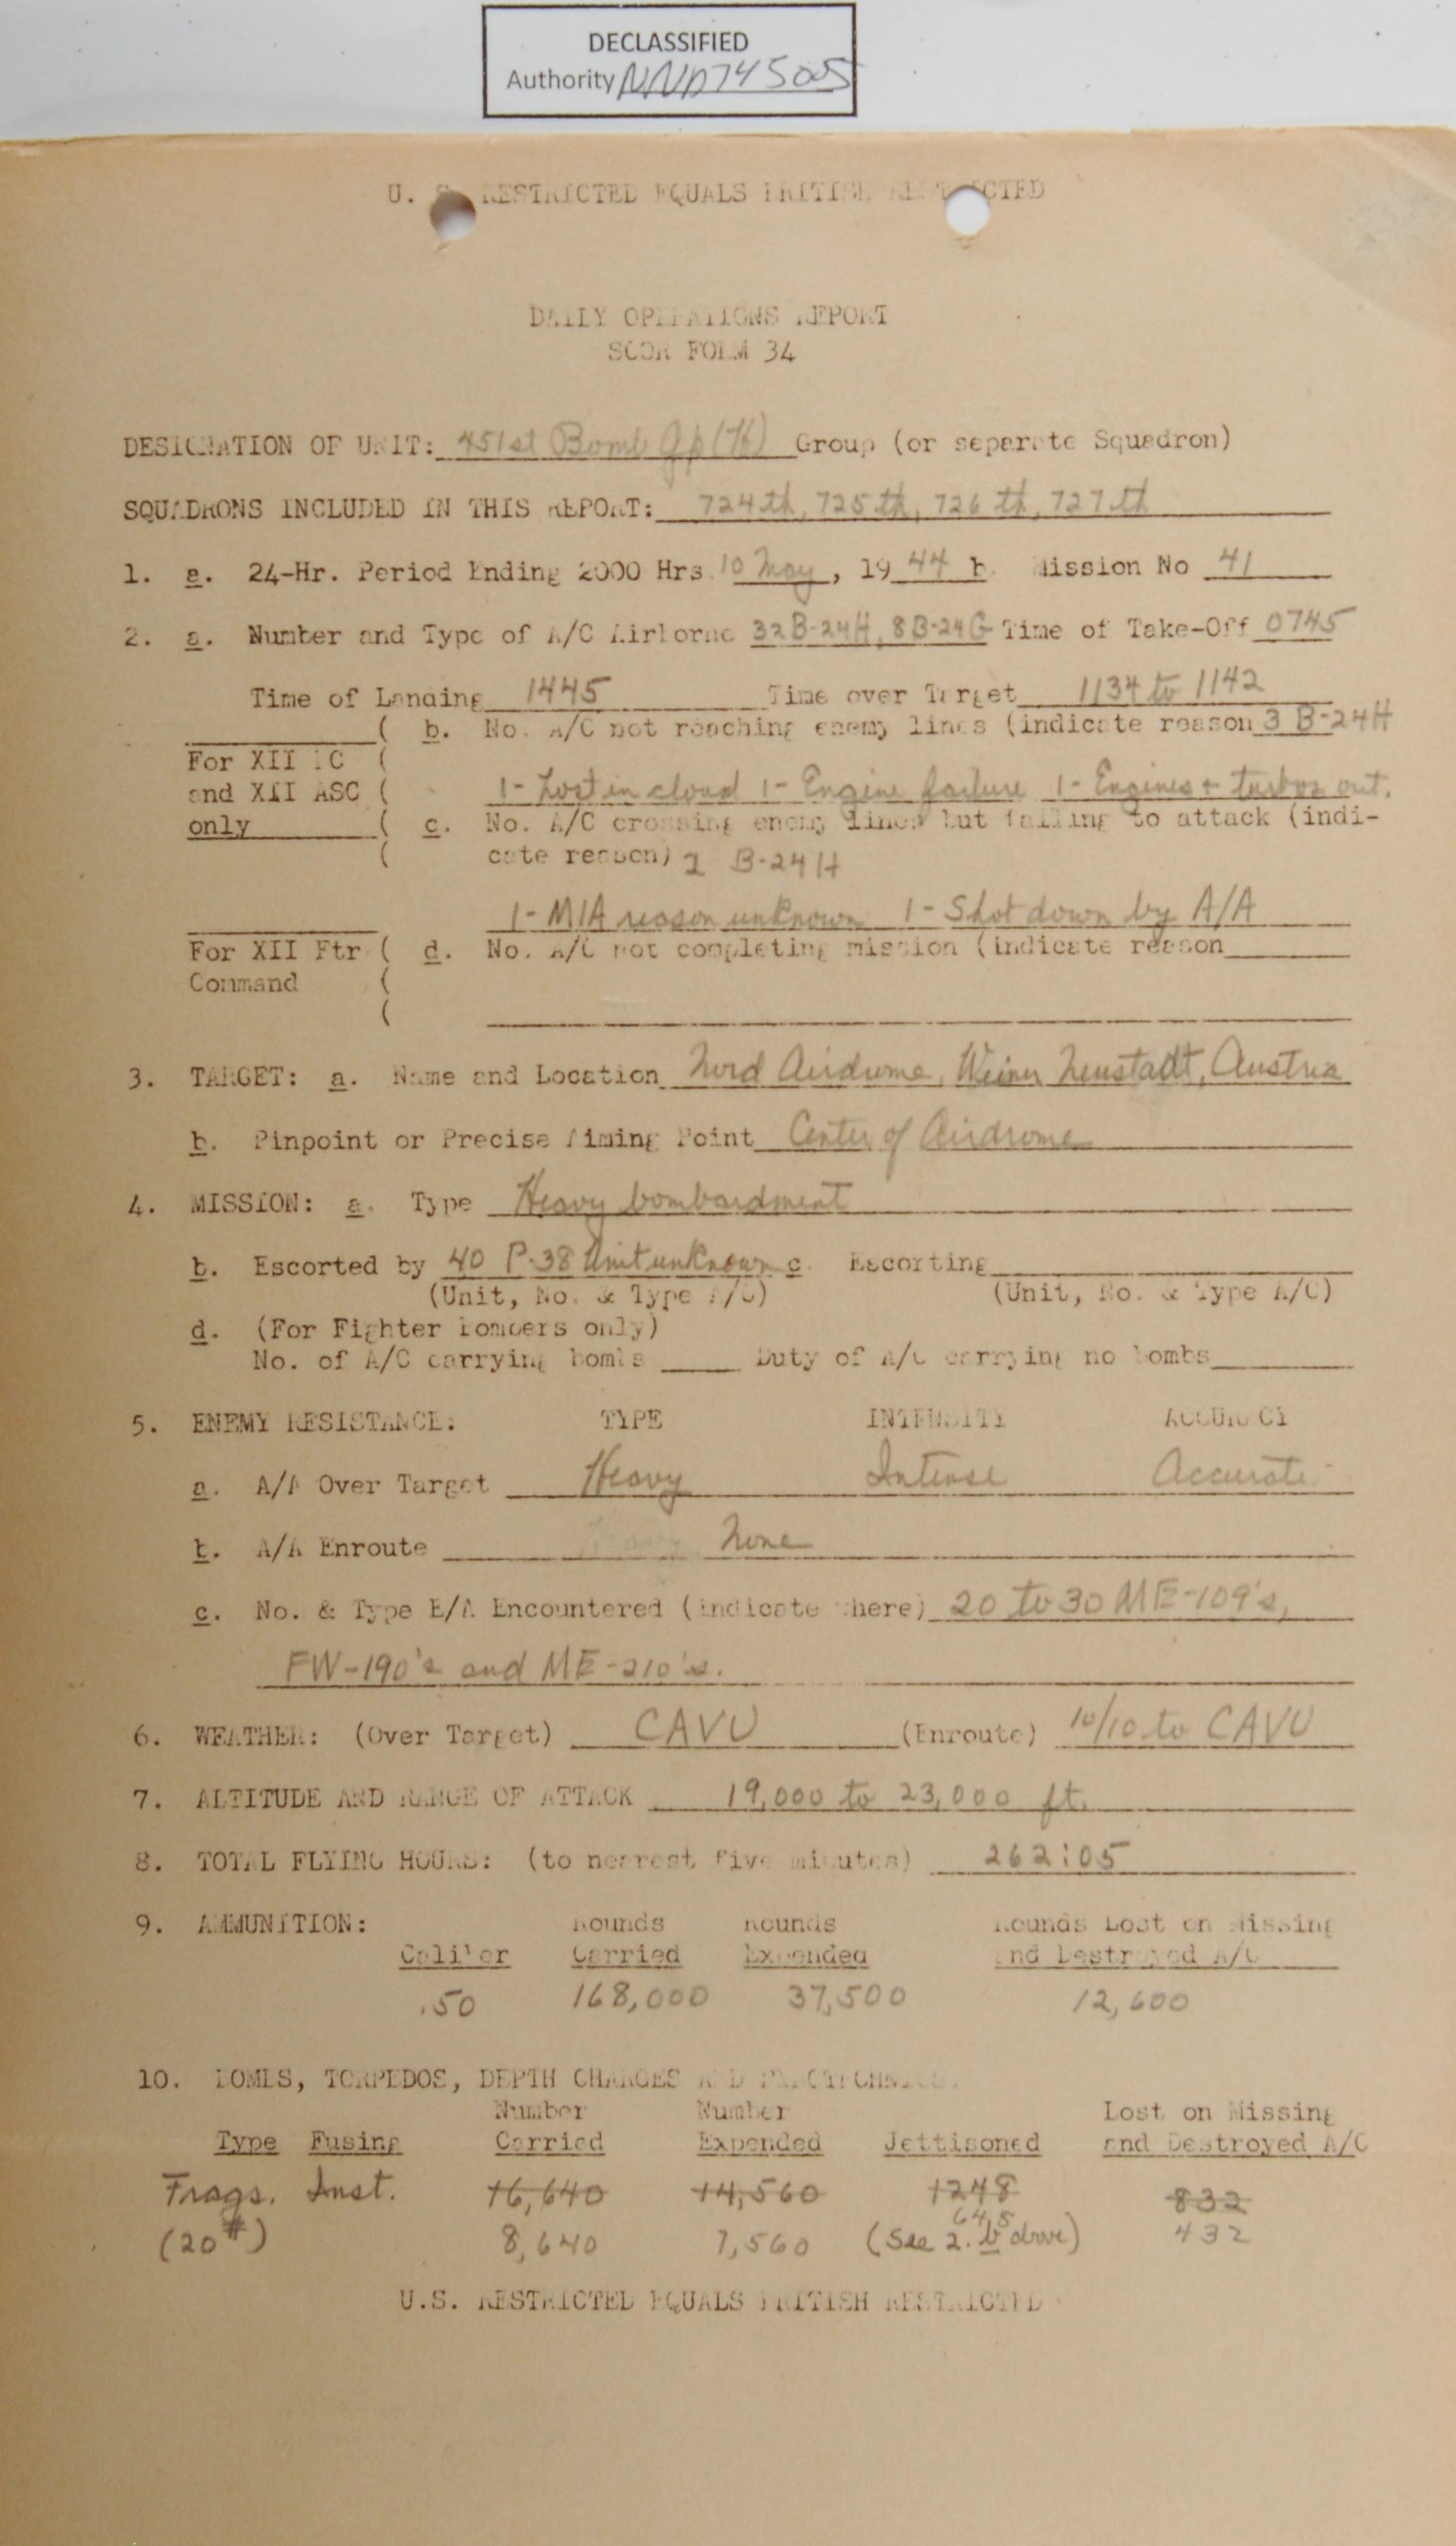 DECLASSIFIED
Authority NND745005
U. S. RESTRICTED EQUALS BRITISH RESTRICTED
DAILY OPERATIONS REPORT
SCOR FORM 34
DESIGNATION OF UNIT: 451st Bomb Gp (H) Group (or separate Squadron)
SQUADRONS INCLUDED IN THIS REPORT: 724th, 725th, 726th, 727th
1. a. 24-Hr. Period Ending 2000 Hrs. 10 May, 1944 b. Mission No 41
2. a. Number and Type of A/C Airborne 32 B-24H, 8 B-24G Time of Take-Off 0745
Time of Landing 1445 Time over Target 1134 to 1142
( b. No. A/C not reaching enemy lines (indicate reason 3 B-24H
For XII BC (
and XII ASC ( 1- Lost in cloud 1- Engine failure 1- Engines + turbos out.
only ( c. No. A/C crossing enemy lines but failing to attack (indi-
( cate reason) 2 B-24H
1- MIA reason unknown 1- Shot down by A/A
For XII Ftr ( d. No. A/C not completing mission (indicate reason
Command (
(
3. TARGET: a. Name and Location Nord Airdrome, Weiner Neustadt, Austria
b. Pinpoint or Precise Aiming Point Center of Airdrome
4. MISSION: a. Type Heavy bombardment
b. Escorted by 40 P-38 Unit unknown c. Escorting
(Unit, No. & Type A/C) (Unit, No. & Type A/C)
d. (For Fighter Bombers only)
No. of A/C carrying bombs Duty of A/C carrying no bombs
5. ENEMY RESISTANCE: TYPE INTENSITY ACCURACY
a. A/A Over Target Heavy Intense Accurate
b. A/A Enroute None
c. No. & Type E/A Encountered (indicate where) 20 to 30 ME-109's,
FW-190's and ME-210's.
6. WEATHER: (Over Target) CAVU (Enroute) 10/10 to CAVU
7. ALTITUDE AND RANGE OF ATTACK 19,000 to 23,000 ft.
8. TOTAL FLYING HOURS: (to nearest five minutes) 262:05
9. AMMUNITION: Rounds Rounds Rounds Lost on Missing
Caliber Carried Expended and Destroyed A/C
.50 168,000 37,500 12,600
10. BOMBS, TORPEDOS, DEPTH CHARGES AND PYROTECHNICS.
Number Number Lost on Missing
Type Fusing Carried Expended Jettisoned and Destroyed A/C
Frags. Inst. 16,640 14,560 1248 832
648
(20#) 8,640 7,560 (See 2. b above) 432
U.S. RESTRICTED EQUALS BRITISH RESTRICTED